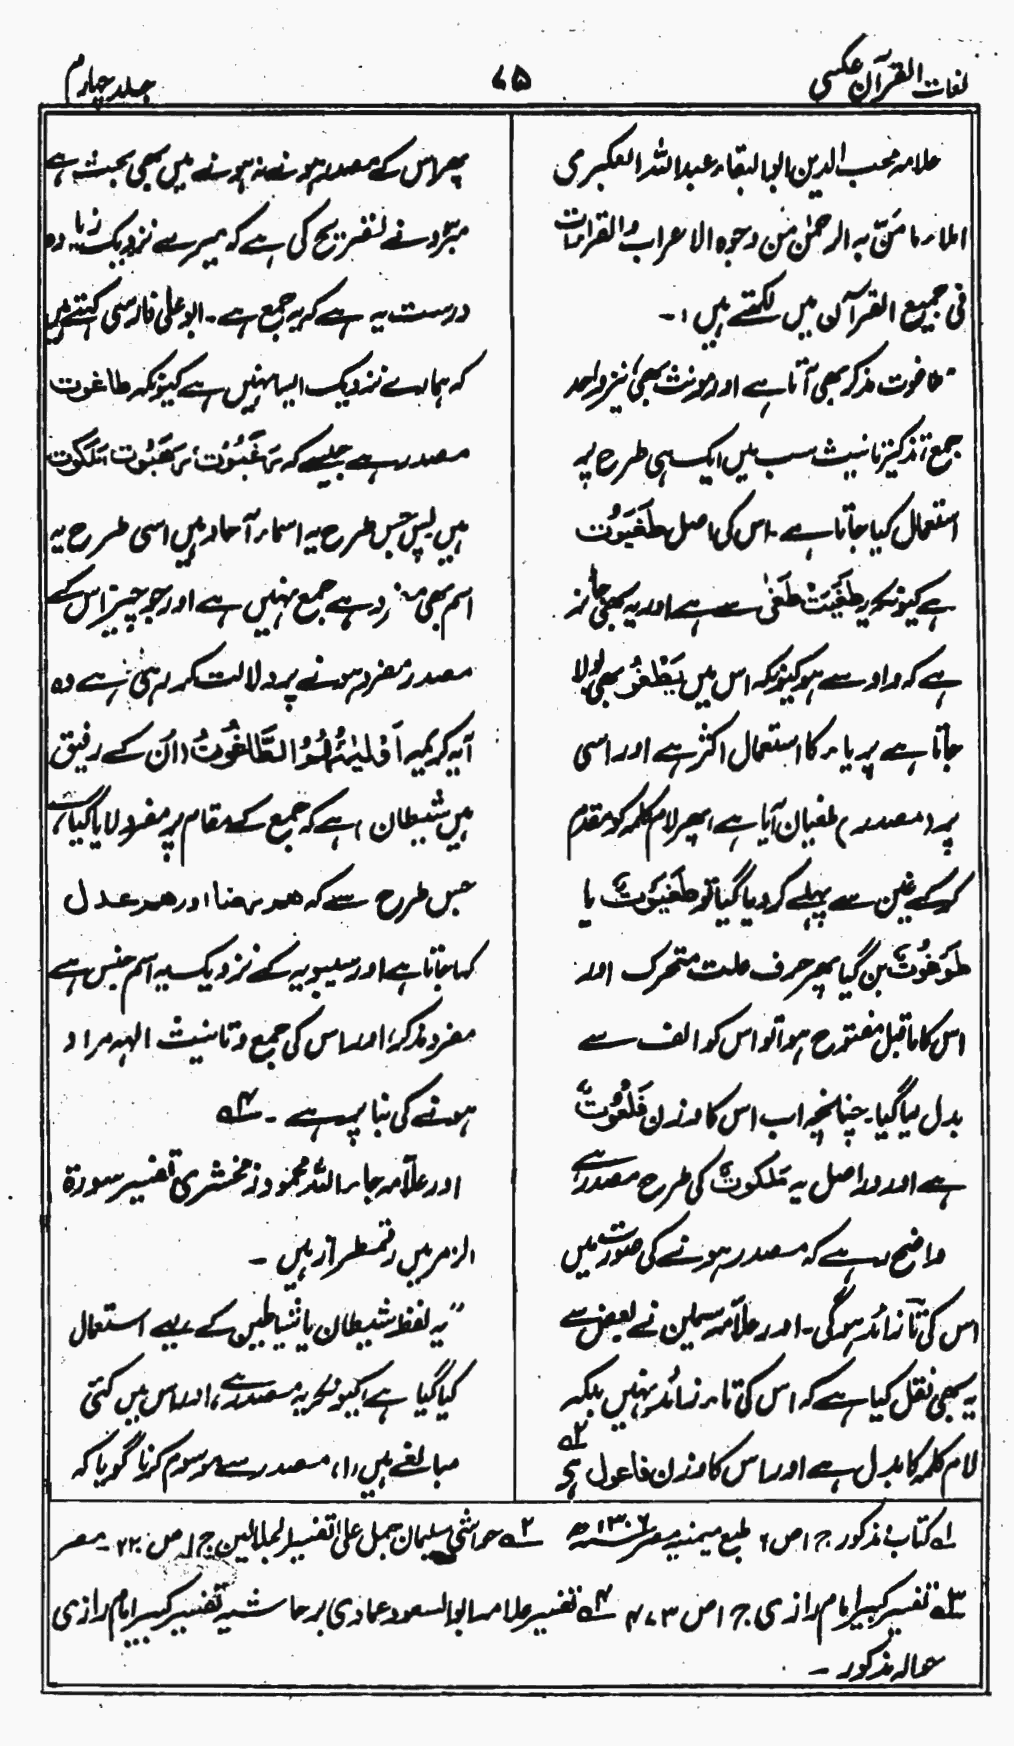 لغات القرآن عکسی
۷۵
جلد چہارم
علامہ محب الدین ابو البقاء عبداللہ العکبری
املاء ما منّ بہ الرحمٰن من وجوہ الاعراب والقراءات
فی جمیع القرآن میں لکھتے ہیں :۔
"طاغوت مذکر بھی آتا ہے اور مونث بھی، نیز واحد
جمع، تذکیر تانیث سب میں ایک ہی طرح پر
استعمال کیا جاتا ہے۔ اس کی اصل طَغَیُوْت
ہے کیونکہ یہ طَغَیْتَ طَغٰی سے ہے اور یہ بھی جائز
ہے کہ واو سے ہو کیونکہ اس میں یَطْغُوْ بھی بولا
جاتا ہے پر یاء کا استعمال اکثر ہے اور اسی
پر (مصدر) طغیان آیا ہے، پھر لام کلمہ کو مقدم
کر کے غین سے پہلے کر دیا گیا تو طَیَغُوْتٌ یا
طَوَغُوْتٌ بن گیا پھر حرف علت متحرک اور
اس کا ماقبل مفتوح ہوا تو اس کو الف سے
بدل لیا گیا۔ چنانچہ اب اس کا وزن فَلَعُوْتٌ
ہے اور دراصل یہ مَلَکُوتٌ کی طرح مصدر ہے
واضح رہے کہ مصدر ہونے کی صورت میں
اس کی تا زائد ہوگی۔ اور علامہ سلیمن نے بعض سے
یہ بھی نقل کیا ہے کہ اس کی تاء زائد نہیں بلکہ
لام کلمہ کا بدل ہے اور اس کا وزن فاعول ہے ۲؎
پھر اس کے مصدر ہونے نہ ہونے میں بھی بحث ہے
مبرّد نے تصریح کی ہے کہ میرے نزدیک زیادہ
درست یہ ہے کہ یہ جمع ہے۔ ابو علی فارسی کہتے ہیں
کہ ہمارے نزدیک ایسا نہیں ہے کیونکہ طاغوت
مصدر ہے جیسے کہ رَغَبُوْت، رَهَبُوْت، مَلَکُوْت
ہیں پس جس طرح یہ اسماء آحاد ہیں اسی طرح یہ
اسم بھی مفرد ہے جمع نہیں ہے اور جو چیز اس کے
مصدر مفرد ہونے پر دلالت کر رہی ہے وہ
آیہ کریمہ اَوْلِیٰٓـُٔهُمُ الطَّاغُوتُ (ان کے رفیق
ہیں شیطان) ہے کہ جمع کے مقام پر مفرد لایا گیا ہے،
جس طرح سے کہ هم رضا اور هم عدل
کہا جاتا ہے اور سیبویہ کے نزدیک یہ اسم جنس ہے
مفرد مذکر، اور اس کی جمع و تانیث الٰہہ مراد
ہونے کی بنا پر ہے۔ ۴؎
اور علّامہ جار اللہ محمود زمخشری تفسیر سورۃ
الزمر میں رقمطراز ہیں۔
"یہ لفظ شیطان یا شیاطین کے لیے استعمال
کیا گیا ہے، کیونکہ یہ مصدر ہے، اور اس میں کئی
مبالغے ہیں (۱) مصدر سے موسوم کرنا گویا کہ
۱؎ کتاب مذکور ج ۱ ص ۶ طبع میمنیہ مصر ۱۳۰۶ھ ۲؎ حواشی سلیمان جمل علی تفسیر الجلالین ج ۱ ص ۲۲۰۔ مصر
۳؎ تفسیر کبیر امام رازی ج ۱ ص ۴۷۳ ۴؎ تفسیر علامہ ابو السعود عمادی بر حاشیہ تفسیر کبیر امام رازی
حوالہ مذکور۔